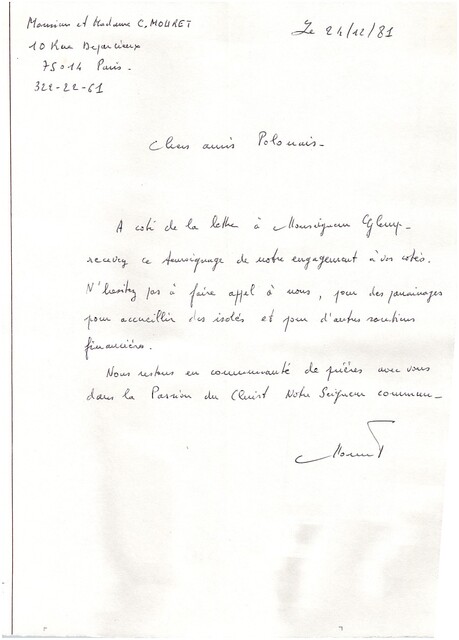 Monsieur et Madame C. MOURET
10 Rue
75014 Paris.
322-22-61
Le 24/12/81
Chers amis Polonais.
A coté de la lettre à Monseigneur Glemp.
recevez ce témoignage de notre engagement à vos cotés.
N'hesitez pas à faire appel à nous, pour des parrainages
pour accueillir des isolés et pour d'autres soutiens
financières.
Nous restons en communauté de prières avec vous
dans la Passion du Christ Notre Seigneur commun.
Mouret